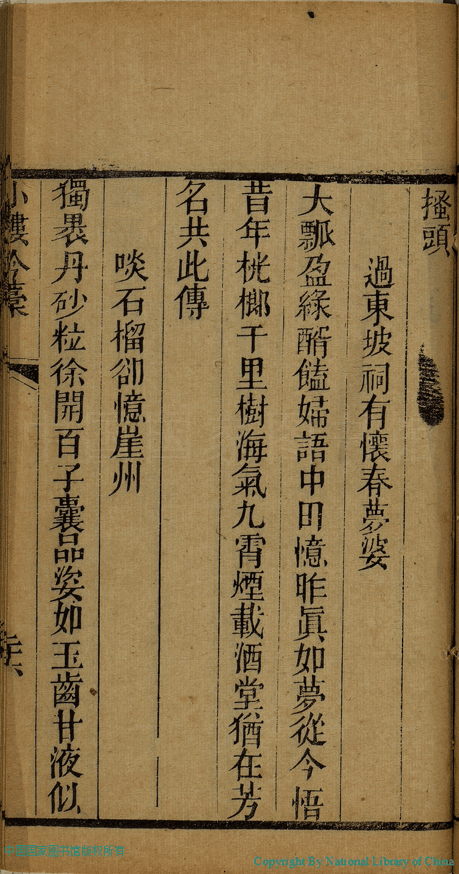 搔頭
過東坡祠有懷春夢婆
大瓢盈綠醑饁婦語中田憶昨眞如夢從今悟
昔年桄榔千里樹海氣九霄煙載酒堂猶在芳
名共此傳
啖石榴卻憶崖州
獨褁丹砂粒徐開百子囊品姿如玉齒甘液似
小樓吟稾
Copyright By National Library of China